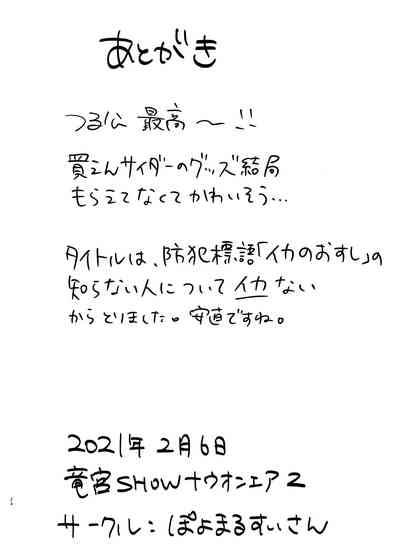 あとがき
つる公 最高〜!!
買えんサイダーのグッズ結局
もらえてなくてかわいそう…
タイトルは、防犯標語「イカのおすし」の
知らない人について イカ ない
からとりました。安直ですね。
2021年2月6日
竜宮SHOWナウオンエア2
サークル：ぽよまるすいさん